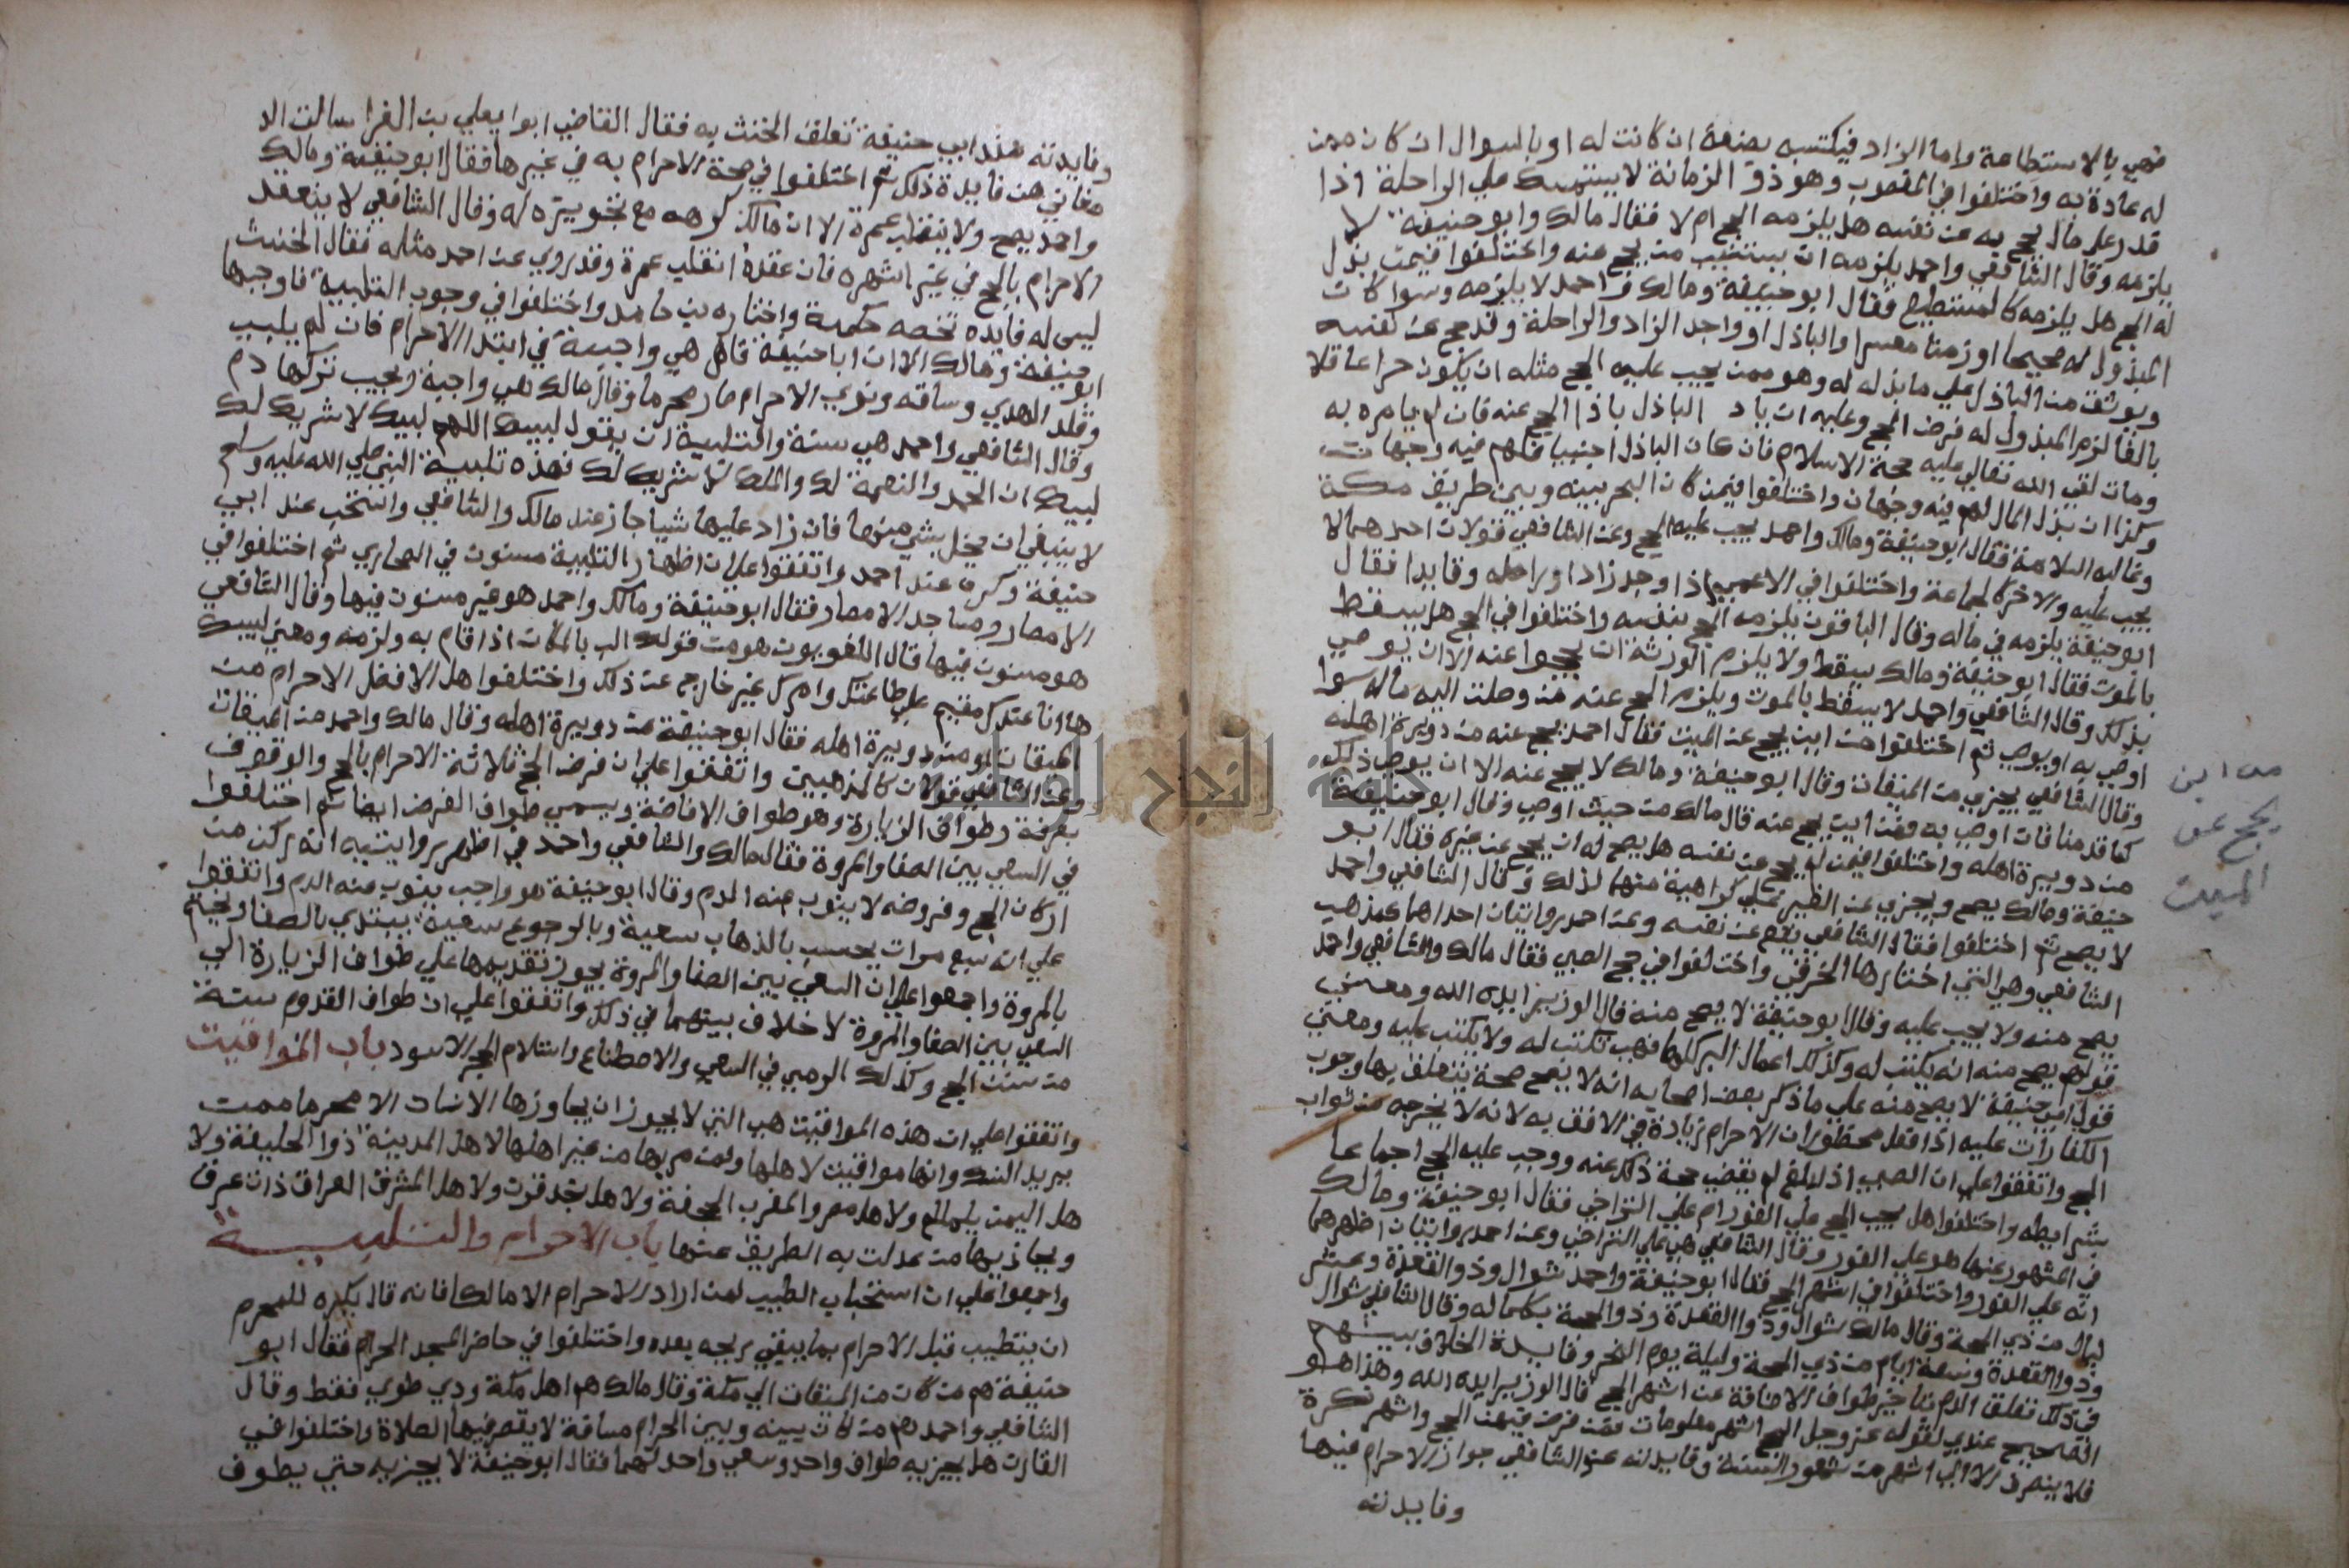 فهي بالاستطاعة واما الزاد فيكتسبه بصنعة ان كانت له او بالسوال ان كان ممن
له عادة به واختلفوا في المغصوب وهو ذو الزمانة لا يستمسك علي الراحلة اذا
قدر علي مال يحج به عن نفسه هل يلزمه الحج ام لا فقال مالك وابو حنيفة لا
يلزمه وقال الشافعي واحمد يلزمه ان يستنيب من يحج عنه واختلفوا فيمن بذل
له الحج هل يلزمه كالمستطيع فقال ابو حنيفة ومالك واحمد لا يلزمه وسوا كان
المبذول له صحيحا او زمنا معسرا والباذل او واجد الزاد والراحلة وقد حج عن نفسه
ويوثق من الباذل علي ما بذله له وهو ممن يجب عليه الحج مثله ان يكون حرا عاقلا
بالغا لزم المبذول له فرض الحج وعليه ان ياذ الباذل باذا الحج عنه فان لم يامره به
ومات لقي الله تعالي عليه حجة الاسلام فان كان الباذل اجنبيا فلهم فيه وجهان
وكذا ان بذل المال لهم فيه وجهان واختلفوا فيمن كان البحر بينه وبين طريق مكة
وغالبه السلامة فقال ابو حنيفة ومالك واحمد يجب عليه الحج وعن الشافعي قولان احدهما لا
يجب عليه والاخر كالجماعة واختلفوا في الاعمي اذا وجد زادا وراحلة وقايدا فقال
ابو حنيفة يلزمه في ماله وقال الباقون يلزمه الحج بنفسه واختلفوا في الحج هل يسقط
بالموت فقال ابو حنيفة ومالك يسقط ولا يلزم الورثة ان يحجوا عنه الا ان يوصي
بذلك وقال الشافعي واحمد لا يسقط بالموت ويلزم الحج عنه من وصلت اليه ماله سوا
اوصي به او يوص ثم اختلفوا من اين يحج عن الميت فقال احمد يحج عنه من دويرة اهله
وقال الشافعي يجزي من الميقات وقال ابو حنيفة ومالك لا يحج عنه الا ان يوصي ذلك
كما قدمنا فان اوصي به فمن اين يحج عنه قال مالك من حيث اوصي وقال ابو حنيفة
من دويرة اهله واختلفوا فيمن لم يحج عن نفسه هل يصح له ان يحج عن غيره فقال ابو
حنيفة ومالك يصح ويجزي عن الغير علي كراهية منهما لذلك وقال الشافعي واحمد
لا يصح ثم اختلفوا فقال الشافعي يقع عن نفسه وعن احمد روايتان احداهما كمذهب
الشافعي وهي التي اختارها الخرقي واختلفوا في حج الصبي فقال مالك والشافعي واحمد
يصح منه ولا يجب عليه وقال ابو حنيفة لا يصح منه قال الوزير ايده الله ومعني
قولهم يصح منه انه يكتب له وكذلك اعمال البر كلها فهي تكتب له ولا يكتب عليه ومعني
قول ابي حنيفة لا يصح منه علي ما ذكر بعض اصحابه انه لا يصح صحة يتعلق بها وجوب
الكفارات عليه اذا فعل محظورات الاحرام زيادة في الافق به لانه لا يخرجه من ثواب
الحج واتفقوا علي ان الصبي اذا بلغ لم يقض حجة ذلك عنه ووجب عليه الحج اجماعا
بشرايطه واختلفوا هل يجب الحج علي الفور ام علي التراخي فقال ابو حنيفة ومالك
في المشهور عنهما هو علي الفور وقال الشافعي هي علي التراخي وعن احمد روايتان اظهرهما
انه علي الفور واختلفوا في اشهر الحج فقال ابو حنيفة واحمد شوال وذو القعدة وعشر
ليال من ذي الحجة وقال مالك شوال وذوا القعدة وذو الحجة بكماله وقال الشافعي شوال
وذو القعدة وتسعة ايام من ذي الحجة وليلة يوم النحر وفايدة الخلاف بينهم
في ذلك تعلق الدم بتاخير طواف الافاضة عن اشهر الحج قال الوزير ايده الله وهذا هو
الصحيح عندي لقوله عز وجل الحج اشهر معلومات فمن فرض فيهن الحج واشهر نكرة
فلا ينصرف الا الي اشهر من شهور السنة وفايدته عند الشافعي جواز الاحرام فيها
وفايدته
من اين
يحج عن
الميت
وفايدته عند ابي حنيفة تعلق الحنث به فقال القاضي ابوا يعلي بن الفرا سالت الا
مغاني هن فايدة ذلك ثم اختلفوا في صحة الاحرام به في غيرها فقال ابو حنيفة ومالك
واحمد يصح ولا ينقلب عمرة الا ان مالك كرهه مع تجويزه له وقال الشافعي لا ينعقد
الاحرام بالحج في غير اشهره فان عقده انقلب عمرة وقد روي عن احمد مثله فقال الحنث
ليس له فايده تخصه حكمية واختاره بن حامد واختلفوا في وجوب التلبية فاوجبها
ابو حنيفة ومالك الا ان ابا حنيفة قال هي واجبة في ابتداء الاحرام فان لم يلبي
وقلد الهدي وساقه ونوي الاحرام صار محرما وقال مالك هي واجبة ويجب بتركها دم
وقال الشافعي واحمد هي سنة والتلبية ان يقول لبيك اللهم لبيك لا شريك لك
لبيك ان الحمد والنعمة لك والملك لا شريك لك فهذه تلبية النبي صلي الله عليه وسلم
لا ينبغي ان يخل بشي منها فان زاد عليها شيا جاز عند مالك والشافعي واستحب عند ابي
حنيفة وكره عند احمد واتفقوا علي ان اظهار التلبية مسنون في الصحاري ثم اختلفوا في
الامصار ومساجد الامصار فقال ابو حنيفة ومالك واحمد هو غير مسنون فيها وقال الشافعي
هو مسنون فيها قال اللغويون هو من قولك الب بالمكان اذا قام به ولزمه ومعني لبيك
ها انا عندك مقيم علي طاعتك وامرك غير خارج عن ذلك واختلفوا هل الافضل الاحرام من
الميقات او من دويرة اهله فقال ابو حنيفة من دويرة اهله وقال مالك واحمد من الميقات
وعن الشافعي قولان كالمذهبين واتفقوا علي ان فرض الحج ثلاثة الاحرام بالحج والوقوف
بعرفة وطواف الزيارة وهو طواف الافاضة ويسمي طواف الفرض ايضا ثم اختلفوا
في السعي بين الصفا والمروة فقال مالك والشافعي واحمد في اظهر روايتيه انه ركن من
اركان الحج وفروضه لا ينوب عنه الدم وقال ابو حنيفة هو واجب ينوب عنه الدم واتفقوا
علي انه سبع مرات يحسب بالذهاب سعية وبالرجوع سعية يبتدي بالصفا ويختم
بالمروة واجمعوا علي ان السعي بين الصفا والمروة يجوز تقديمها علي طواف الزيارة الي
السعي بين الصفا والمروة لا خلاف بينهما في ذلك واتفقوا علي ان طواف القدوم سنة
من سنن الحج وكذلك الرمي في السعي والاصطناع واستلام الحجر الاسود باب المواقيت
واتفقوا علي ان هذه المواقيت هي التي لا يجوز ان يجاوزها الانسان الا محرما ممن
يريد النسك وانها مواقيت لاهلها ولمن مر بها من غير اهلها لاهل المدينة ذوا الحليفة ولا
هل اليمن يلملم ولاهل مصر والمغرب الجحفة ولاهل نجد قرن ولاهل المشرق العراق ذات عرق
ويحاذيها من عدلت به الطريق عنها باب الاحرام والتلبية
واجمعوا علي ان استحباب الطيب لمن اراد الاحرام الا مالكا فانه قال يكره للمحرم
ان يتطيب قبل الاحرام بما يبقي ريحه بعده واختلفوا في حاضر المسجد الحرام فقال ابو
حنيفة هم من كان من الميقات الي مكة وقال مالك هم اهل مكة وذي طوي فقط وقال
الشافعي واحمد هم من كان بينه وبين الحرام مسافة لا يقصر فيها الصلاة واختلفوا في
القارن هل يجزيه طواف واحد وسعي واحد لهما فقال ابو حنيفة لا يجزيه حتي يطوف